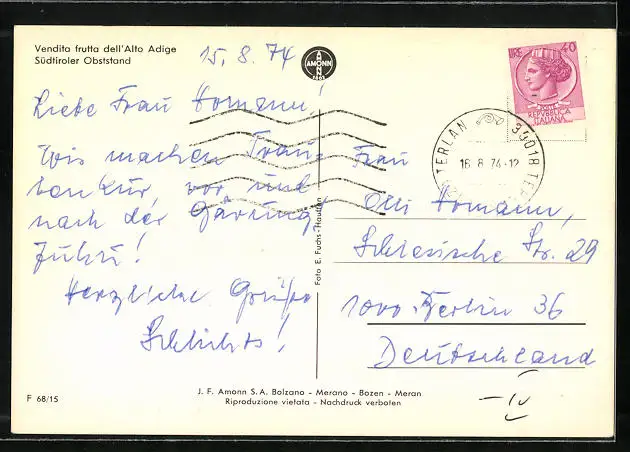 Vendita frutta dell'Alto Adige
Südtiroler Obststand
15. 8. 74
AMONN
1802
LIRE 40
POSTE
REPVBBLICA
ITALIANA
TERLAN
39018
16 8 74-12
Liebe Frau Homann!
Wir machen Trau-
benkur, vor und
nach der Gärung
Juhu!
Herzliche Grüße
Schlichts!
Frau
Olli Homann,
Schlesische Str. 29
1000 Berlin 36
Deutschland
Foto E. Fuchs-Hauffen
J. F. Amonn S.A. Bolzano - Merano - Bozen - Meran
Riproduzione vietata - Nachdruck verboten
F 68/15